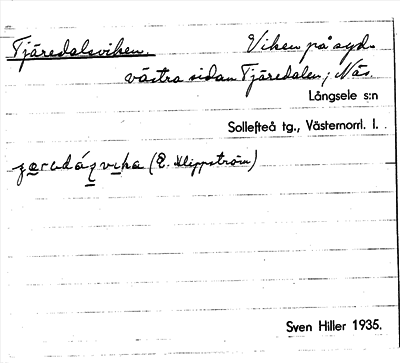 Tjäredalsviken. Viken på syd-
västra sidan Tjäredalen; Näs
Långsele s:n
Sollefteå tg., Västernorrl. l.
(E. Klippström)
Sven Hiller 1935.